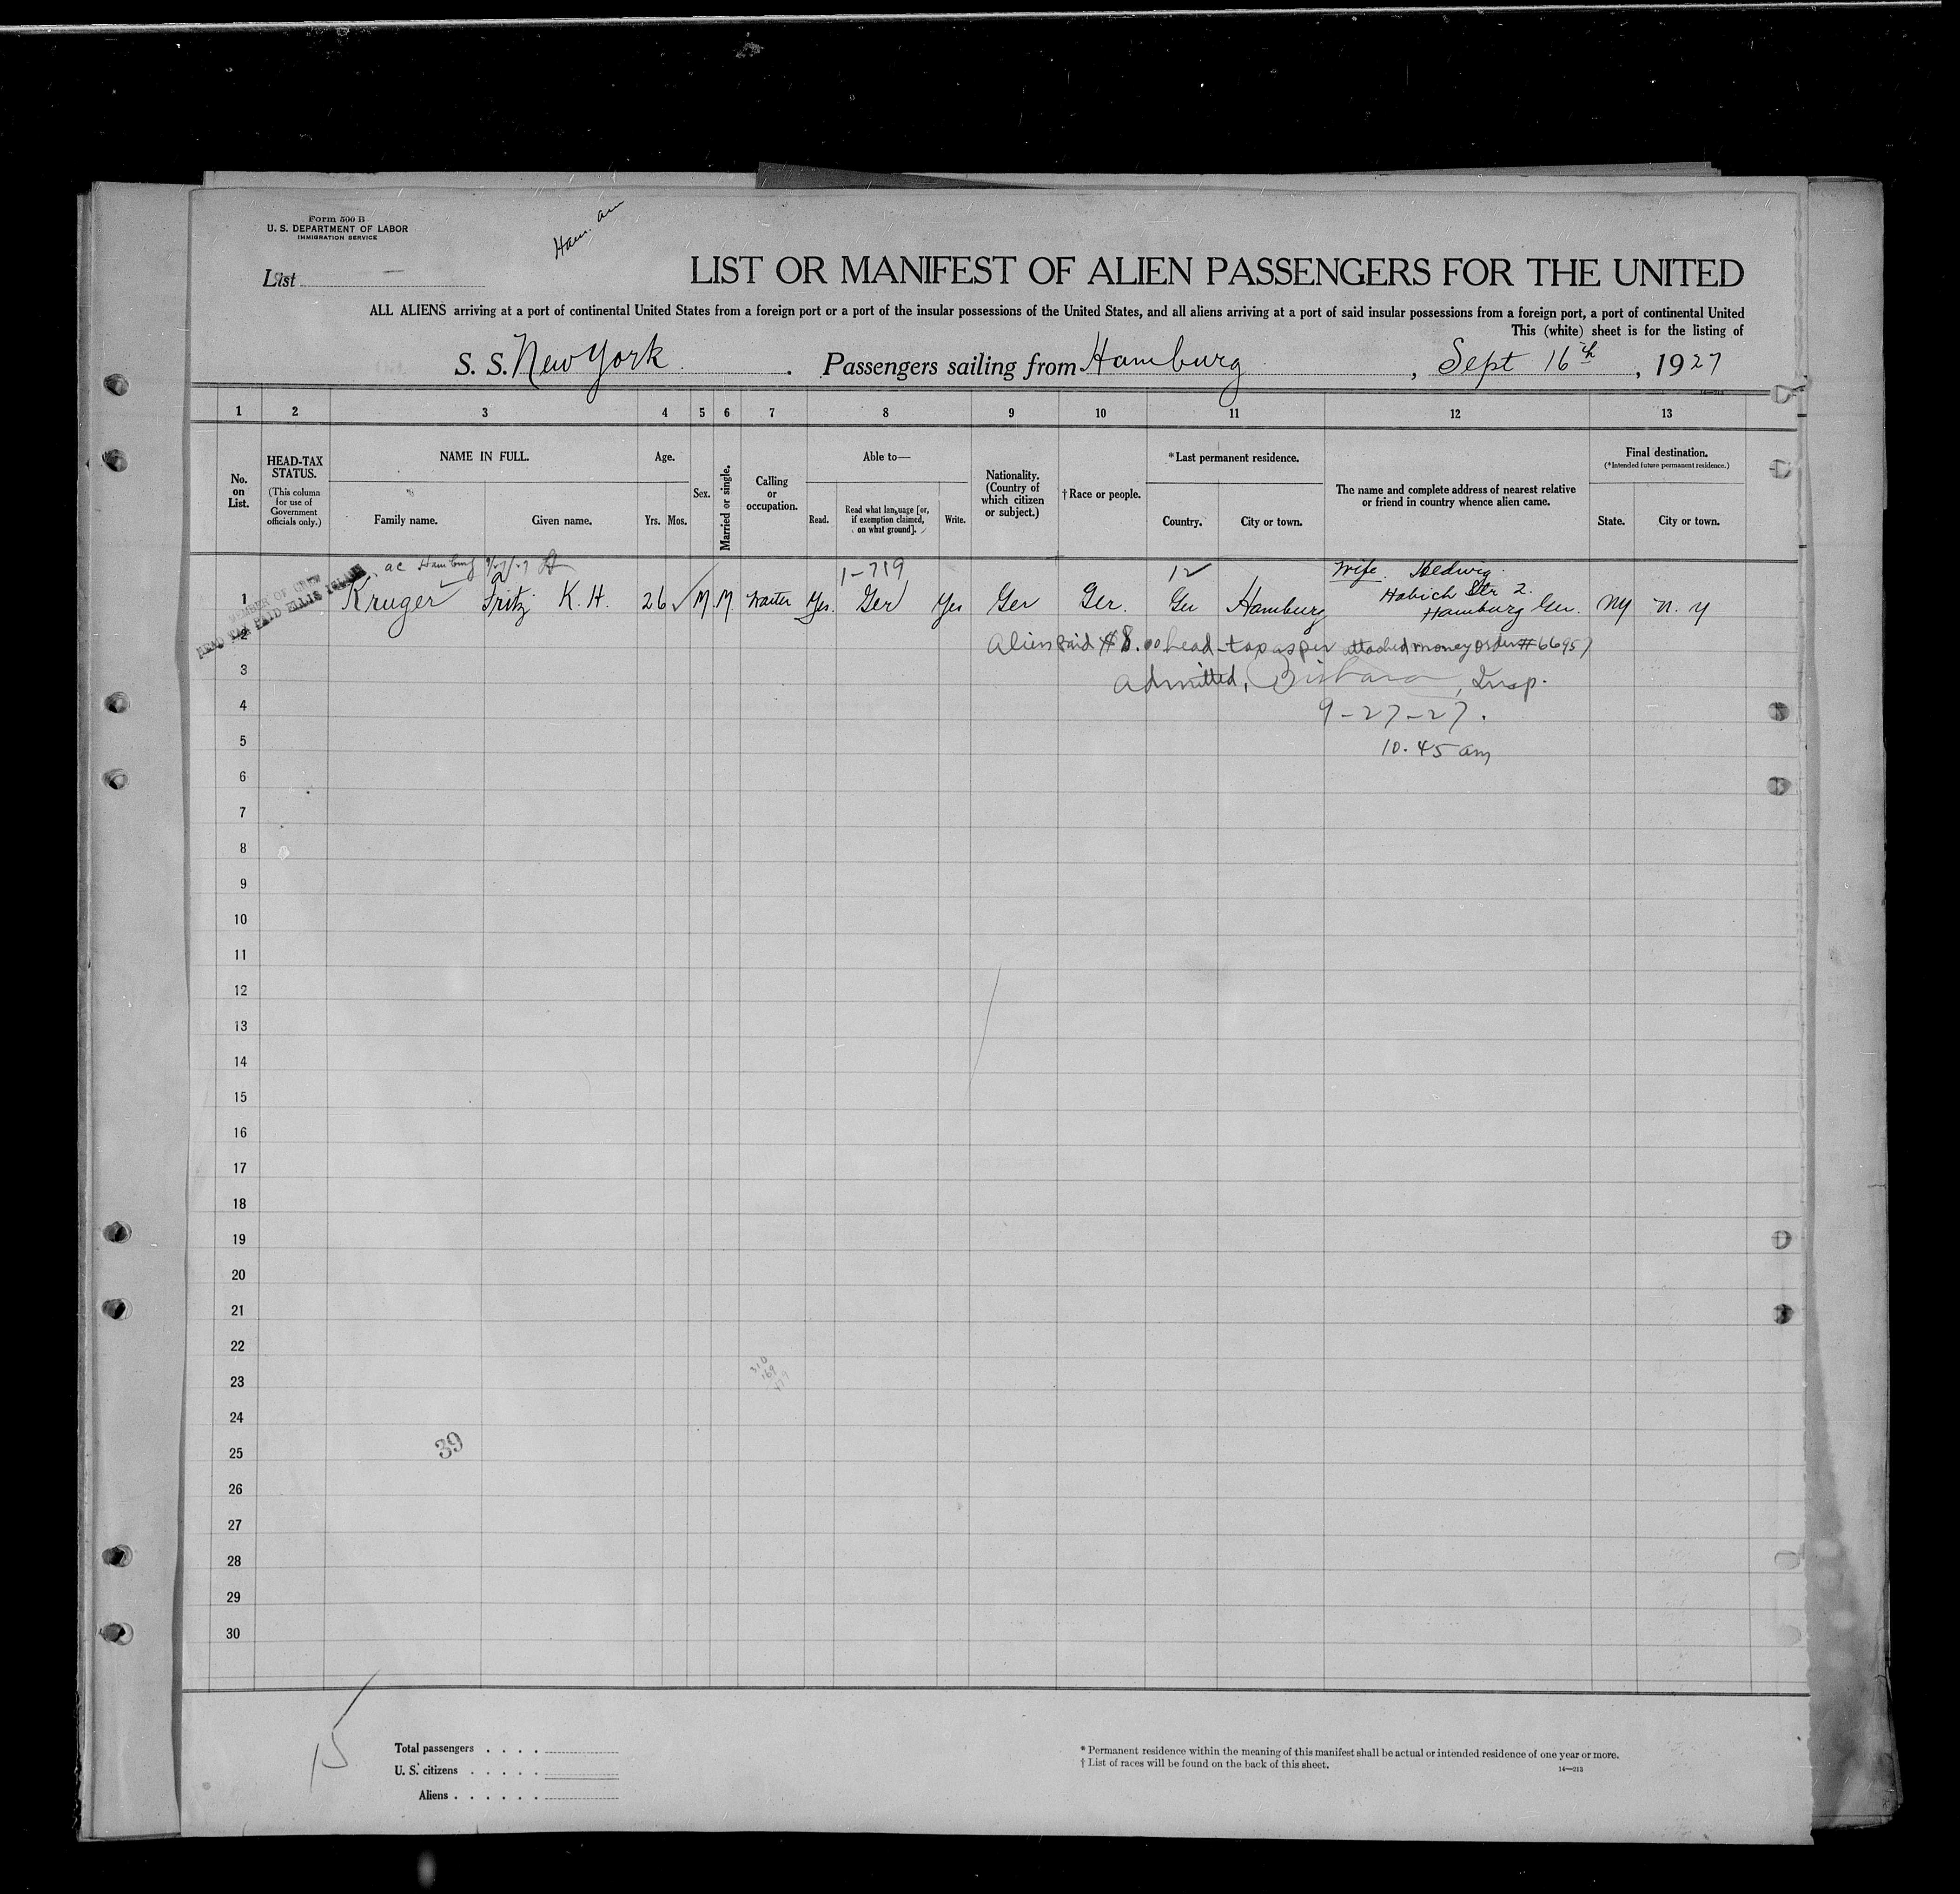 Form 500 B
U. S. DEPARTMENT OF LABOR
IMMIGRATION SERVICE
Ham. am
List
LIST OR MANIFEST OF ALIEN PASSENGERS FOR THE UNITED
ALL ALIENS arriving at a port of continental United States from a foreign port or a port of the insular possessions of the United States, and all aliens arriving at a port of said insular possessions from a foreign port, a port of continental United
This (white) sheet is for the listing of
S. S. New York. Passengers sailing from Hamburg, Sept 16th, 1927
1 2 3 4 5 6 7 8 9 10 11 12 13
No. on List.
HEAD-TAX STATUS.
(This column for use of Government officials only.)
NAME IN FULL.
Family name. Given name.
Age.
Yrs. Mos.
Sex.
Married or single.
Calling or occupation.
Able to—
Read. Read what language [or, if exemption claimed, on what ground]. Write.
Nationality. (Country of which citizen or subject.)
† Race or people.
* Last permanent residence.
Country. City or town.
The name and complete address of nearest relative or friend in country whence alien came.
Final destination.
(* Intended future permanent residence.)
State. City or town.
MEMBER OF CREW
HEAD TAX PAID ELLIS ISLAND
ac Hamburg
1-719
12
Wife. Hedwig.
Habich Str 2.
1 Kruger Fritz K. H. 26 M M Waiter Yes. Ger Yes Ger Ger. Ger Hamburg Hamburg Ger. NY N. Y
2 Alien paid $8.00 head-tax as per attached money order # 66957
3 Admitted, Insp.
4 9-27-27.
5 10.45 am
6
7
8
9
10
11
12
13
14
15
16
17
18
19
20
21
22
23
310
169
479
24
25
39
26
27
28
29
30
15
Total passengers . . . .
U. S. citizens . . . . .
Aliens . . . . . .
* Permanent residence within the meaning of this manifest shall be actual or intended residence of one year or more.
† List of races will be found on the back of this sheet.
14—213